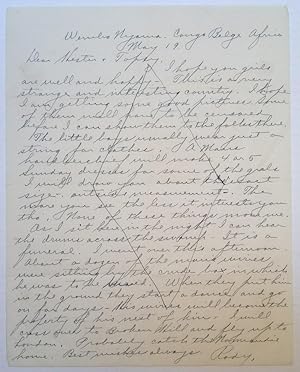 Wembo Nyama. Congo Belge Africa
May 19.
Dear Hester & Toppy.
I hope you girls
are well and happy - This is a very
strange and interesting country. I hope
I am getting some good pictures some
of them will have to be censored
before I can show them to the folks there.
The little boys usually wear just a
string for clothes. A Mans
handkerchief will make 4 or 5
Sunday dresses for some of the girls
I will draw you about the
size - actual measurement - The
more you see the less it interests you
tho. None of these things move me.
As I sit here in the night I can hear
the drums across the It is a
funeral. I went out this afternoon
About a dozen of the mans wives
were sitting by the crude box in which
he was to be buried. When they put him
in the ground they start a dance and go
on for days - His wives will become the
property of his next of kin. I will
cross over to Broken Hill and fly up to
London. Probably catch the Normandie
home. Best wishes always.